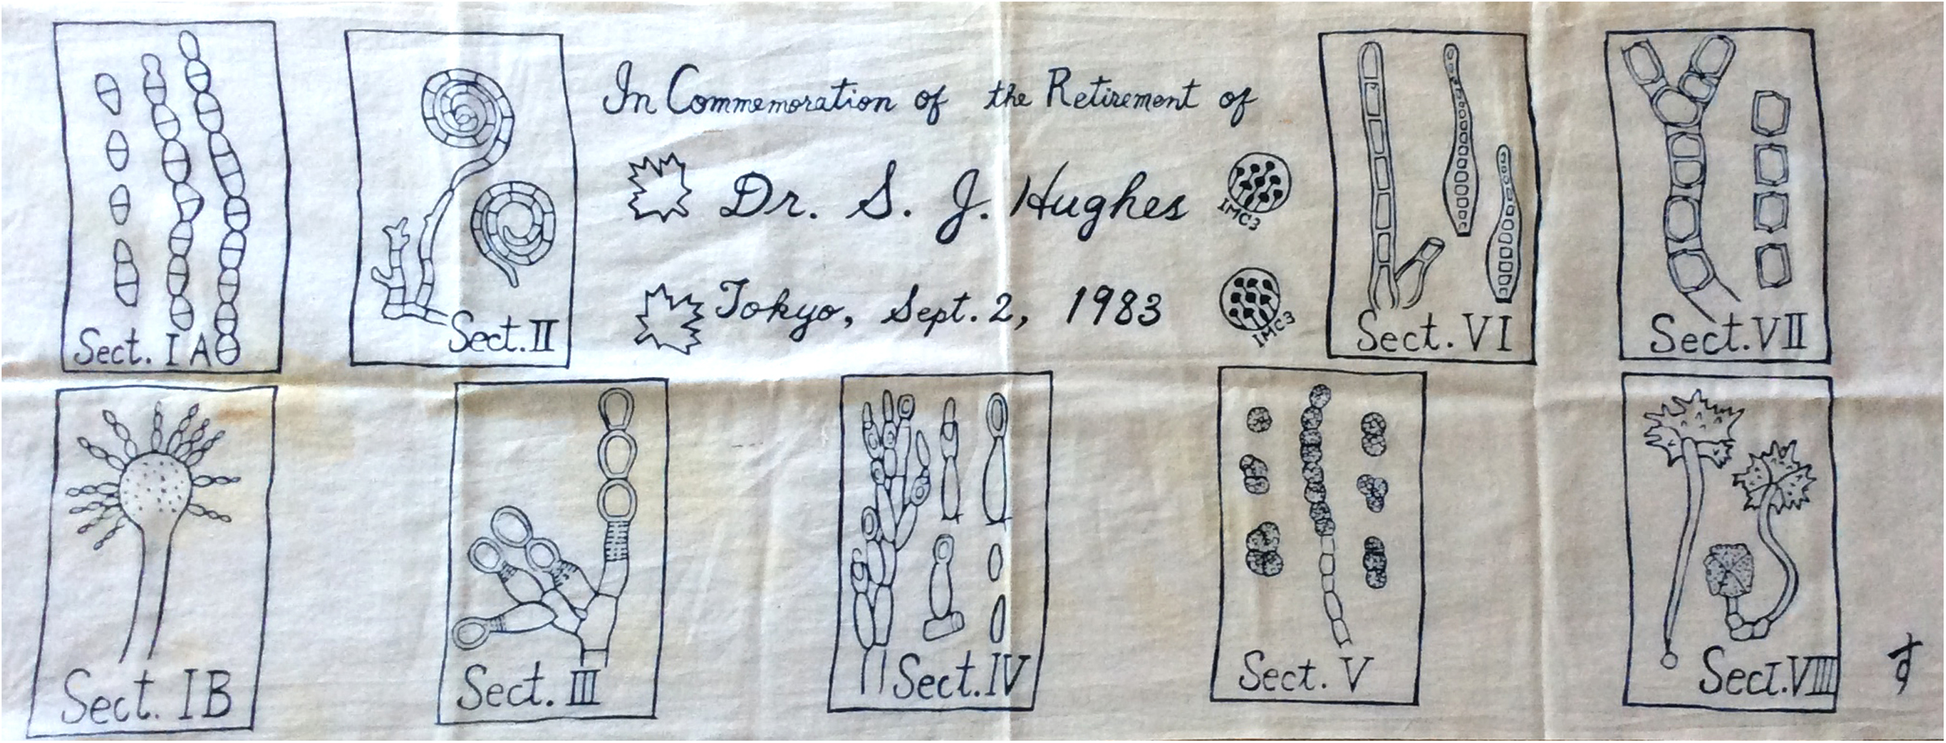 In Commemoration of the Retirement of
Dr. S. J. Hughes
IMC3
Tokyo, Sept. 2, 1983
IMC3
Sect. IA
Sect. II
Sect. VI
Sect. VII
Sect. IB
Sect. III
Sect. IV
Sect. V
Sect. VIII
す